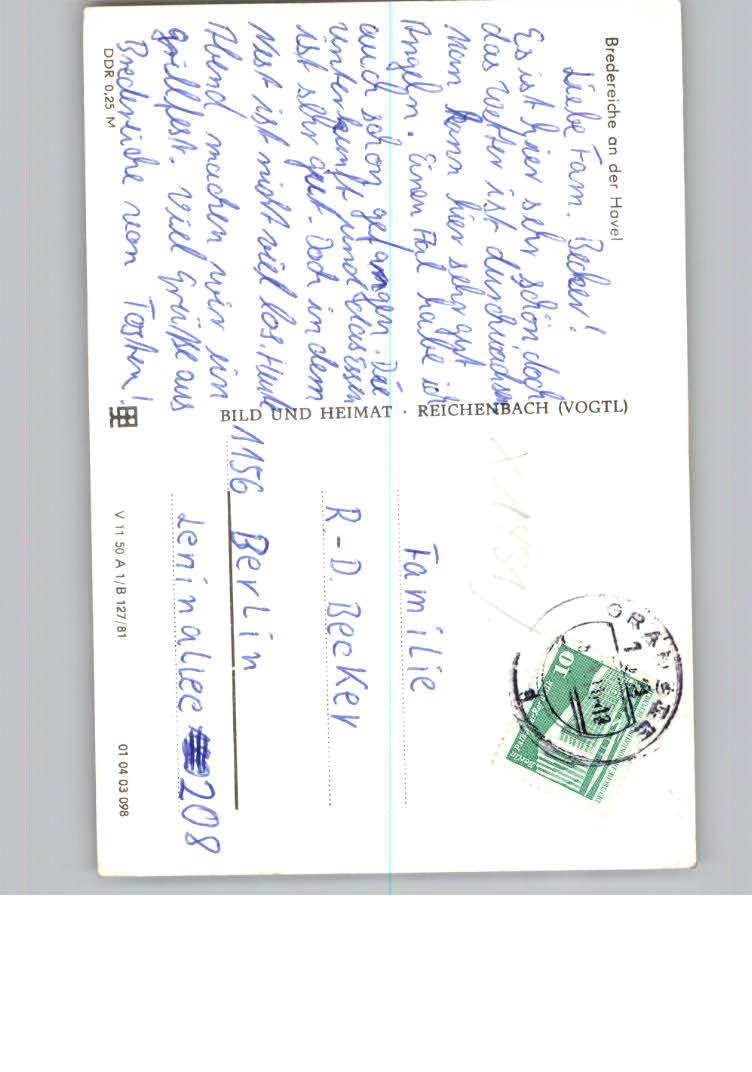 Bredereiche an der Havel
Liebe Fam. Becker!
Es ist hier sehr schön doch
das Wetter ist durchwachsen
Man kann hier sehr gut
Angeln. Einen Aal habe ich
auch schon gefangen. Die
unterkunft und das Essen
ist sehr gut. Doch in dem
Nest ist nicht viel los. Heute
Abend machen wir ein
grillfest. Viel Grüße aus
Bredereiche von Torsten!
DDR 0,25 M
BILD UND HEIMAT · REICHENBACH (VOGTL)
Familie
R.-D. Becker
1156 Berlin
Leninallee 208
V 11 50 A 1/B 127/81
01 04 03 098
10